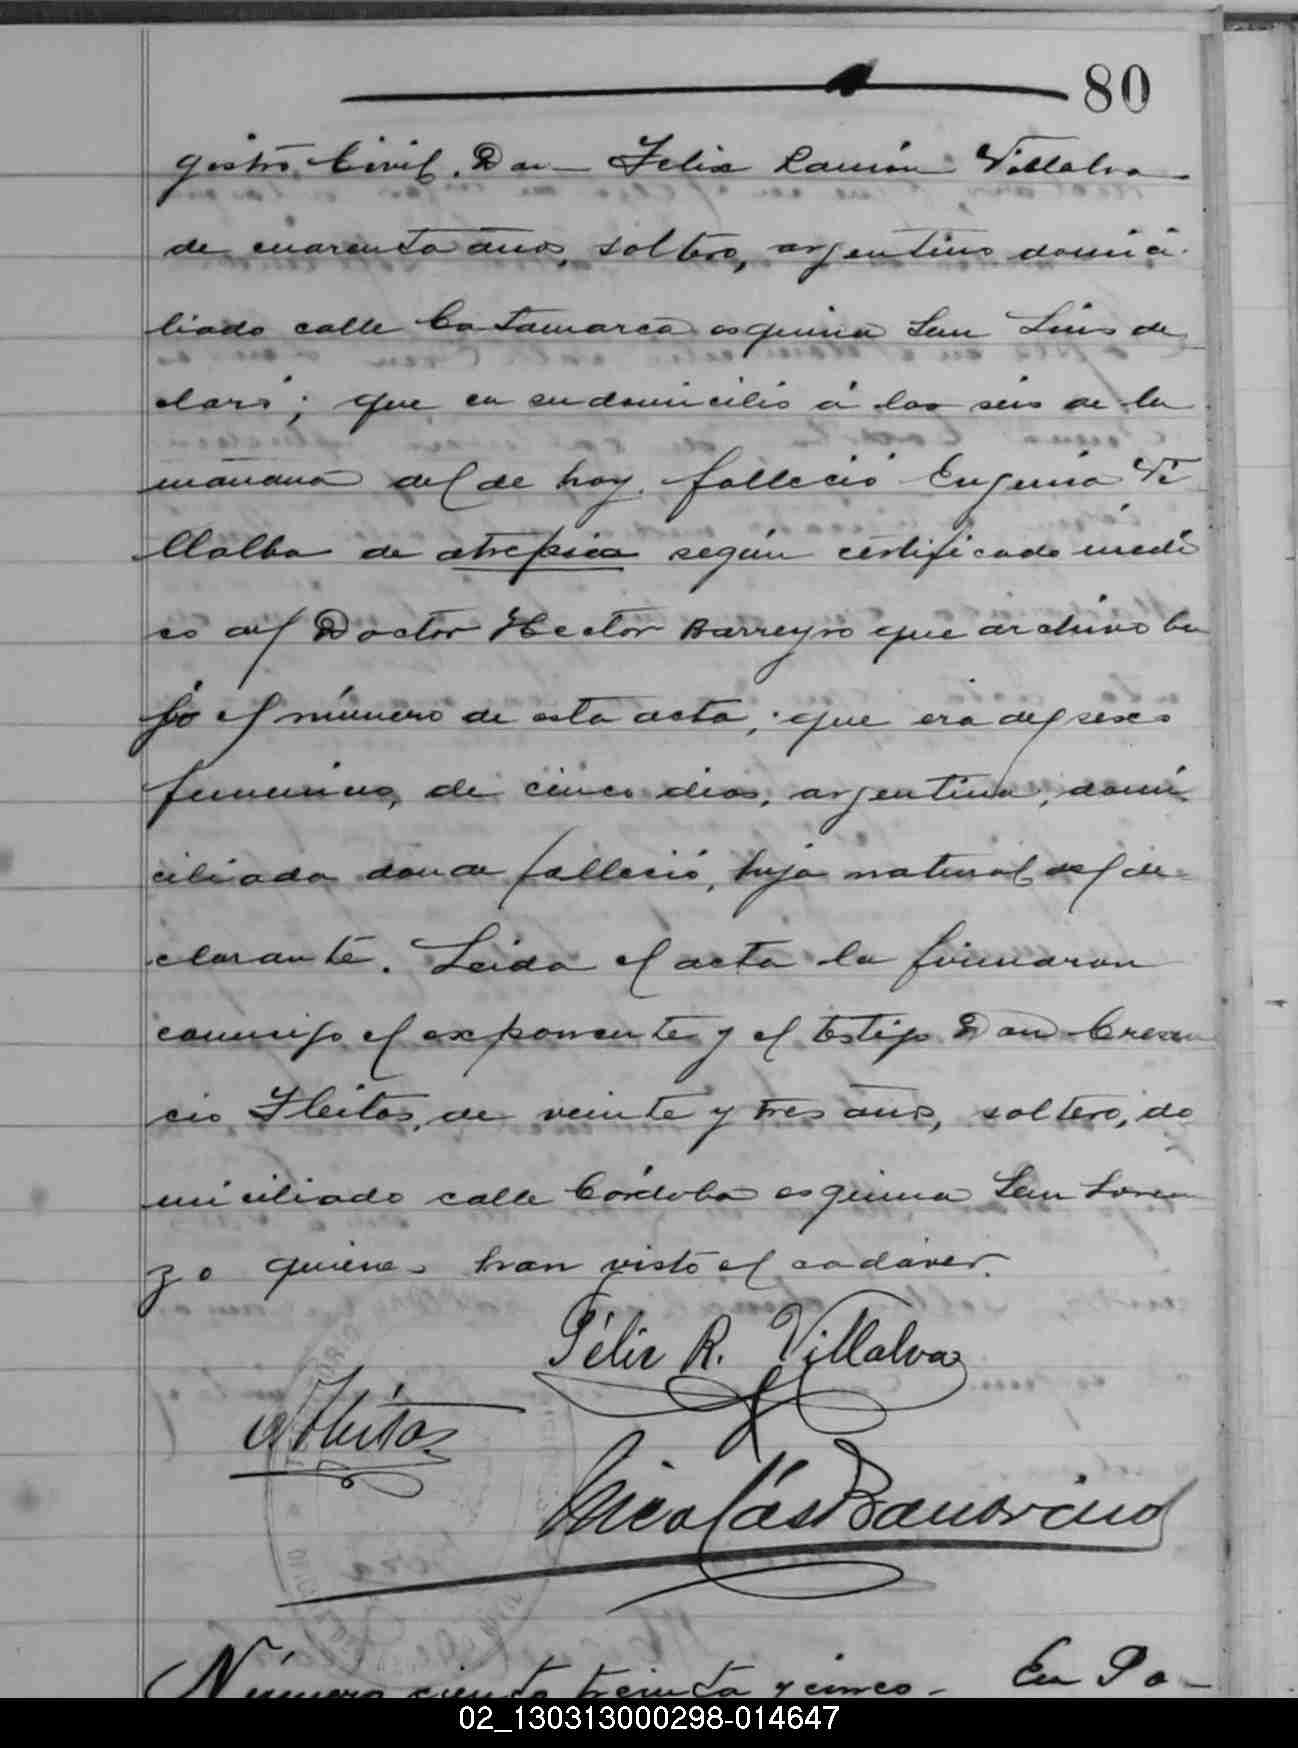 80
gistro Civil, Don Felix Ramón Villalva
de cuarenta años, soltero, argentino domici
liado calle Catamarca esquina San Luis de
claró; que en su domicilio á las seis de la
mañana del de hoy falleció Eugenia Vi
llalba de atrepsica según certificado médi
co del Doctor Hector Barreyro que archivo ba
jo el número de esta acta; que era del sexo
femenino, de cinco dias, argentina, domi
ciliada donde falleció, hija natural del de
clarante. Leida el acta la firmaron
conmigo el exponente y el testigo Don Cresen
cio Fleitas, de veinte y tres años, soltero, do
miciliado calle Córdoba esquina San Loren
zo quienes han visto el cadáver.
Félix R. Villalva
Fleitas
Nicolás
Número ciento treinta y cinco - En Po-
02_130313000298-014647